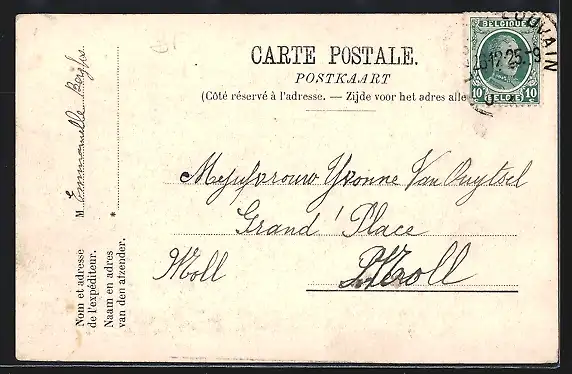 CARTE POSTALE.
POSTKAART
(Côté réservé à l'adresse. — Zijde voor het adres alle
BELGIQUE
10 BELGIË 10
LOUVAIN
12 25
Mejufvrouw Yvonne Van Ouytsel
Grand' Place
Moll
Moll
M Emmanuelle
Nom et adresse
de l'expéditeur.
Naam en adres
van den afzender.
*